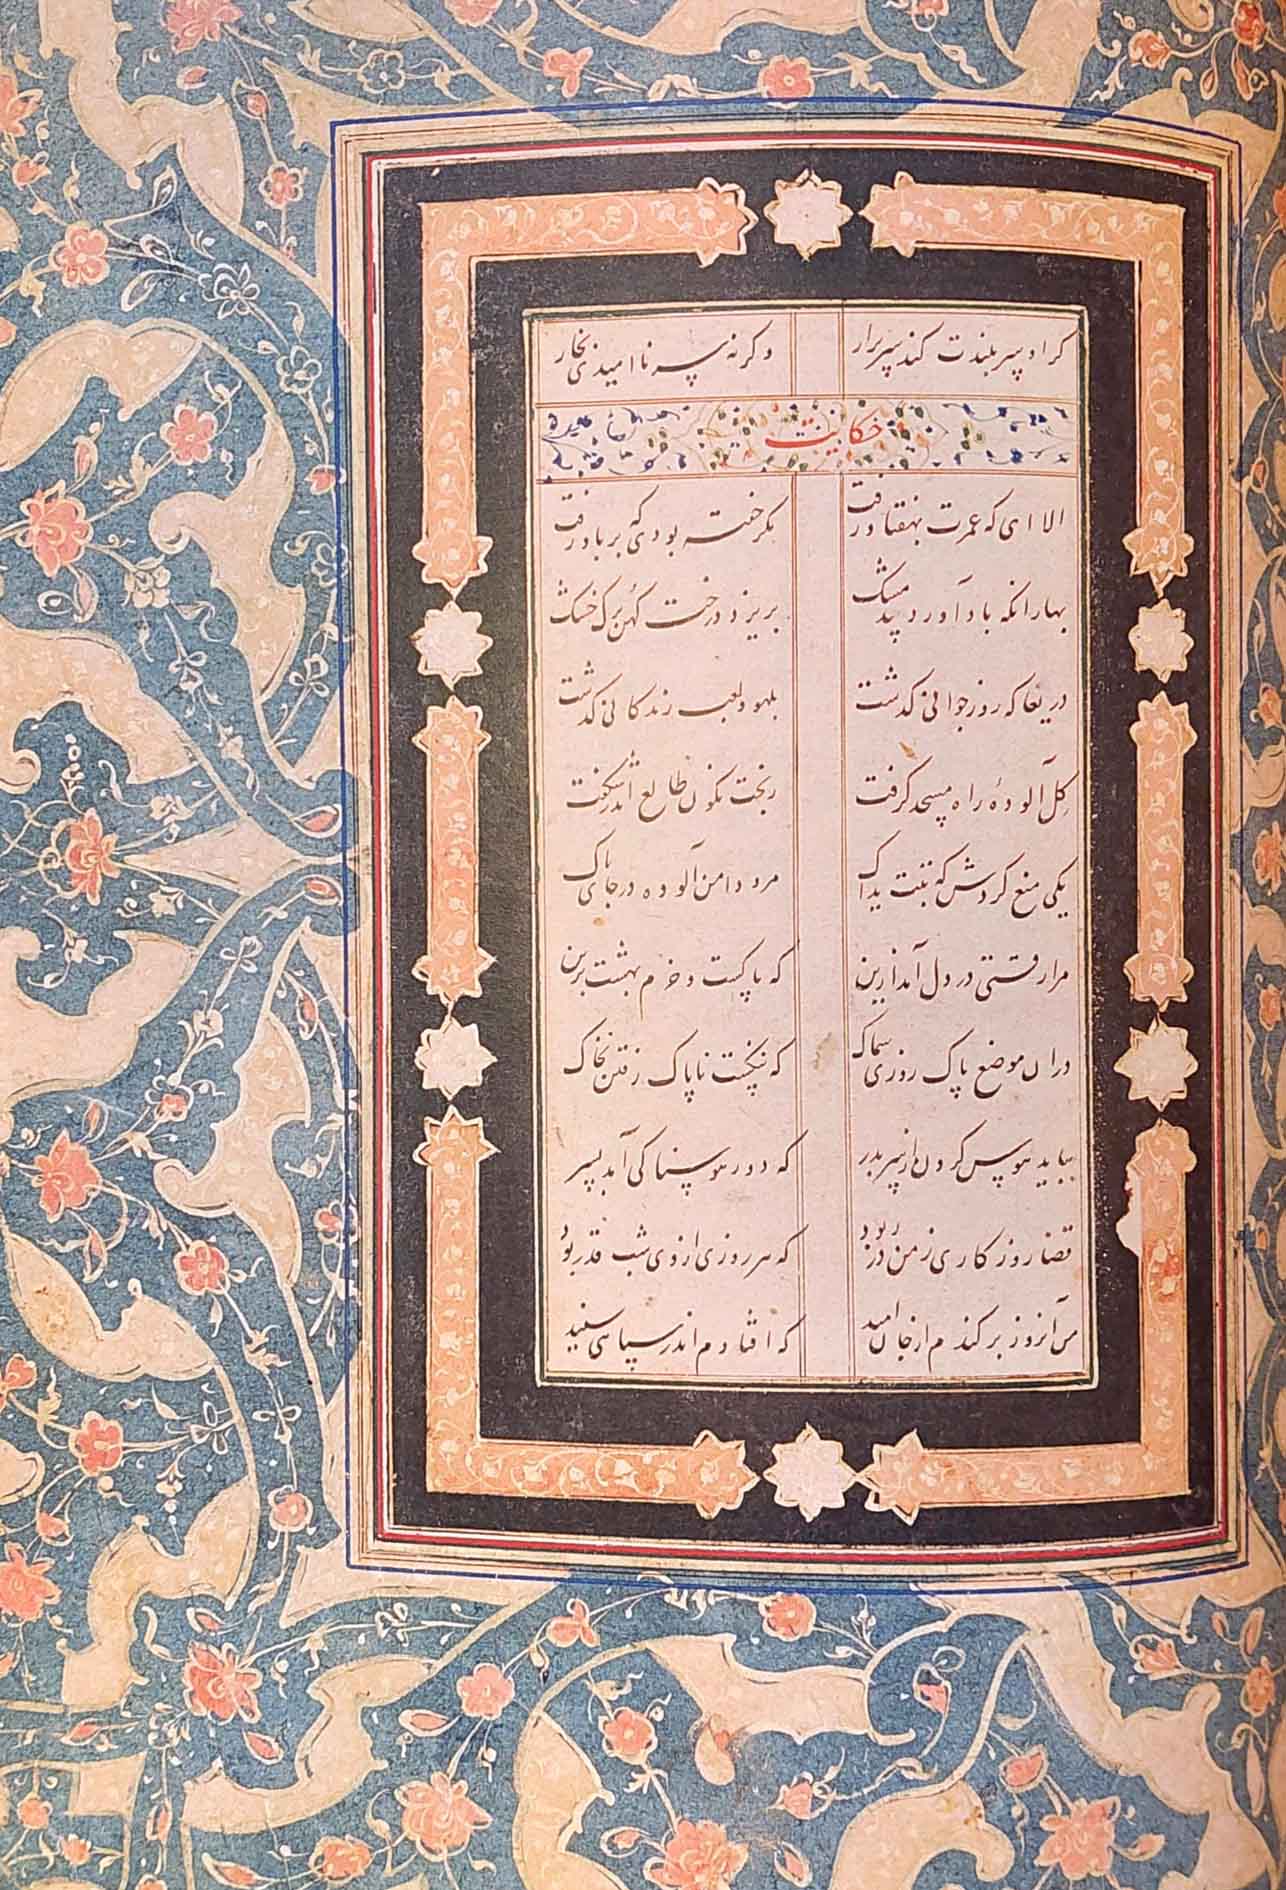 گر او سر بلندت کند سر برار
وگرنه سر ناامیدی بخار
حکایت
الا ای که عمرت بهفتاد رفت
مگر خفته بودی که بر باد رفت
بهارانکه باد آورد بید مشک
بریزد درخت کهن برگ خشک
دریغا که روز جوانی گذشت
بلهو و لعب زندگانی گذشت
گل آلوده راه مسجد گرفت
ز بخت نگون طالع اندر شگفت
یکی منع کردش که تبت یداک
مرو دامن آلوده در جای پاک
مرا رقتی در دل آمد ازین
که پاکست و خرم بهشت برین
دران موضع پاک روزی
که ننگست ناپاک رفتن بخاک
بباید هوس کردن از سر بدر
که دور هوسناکی آمد بسر
قضا روزگاری ز من در ربود
که هر روزی از وی شب قدر بود
من آنروز برکندم از جان امید
که افتادم اندر سیاهی سپید